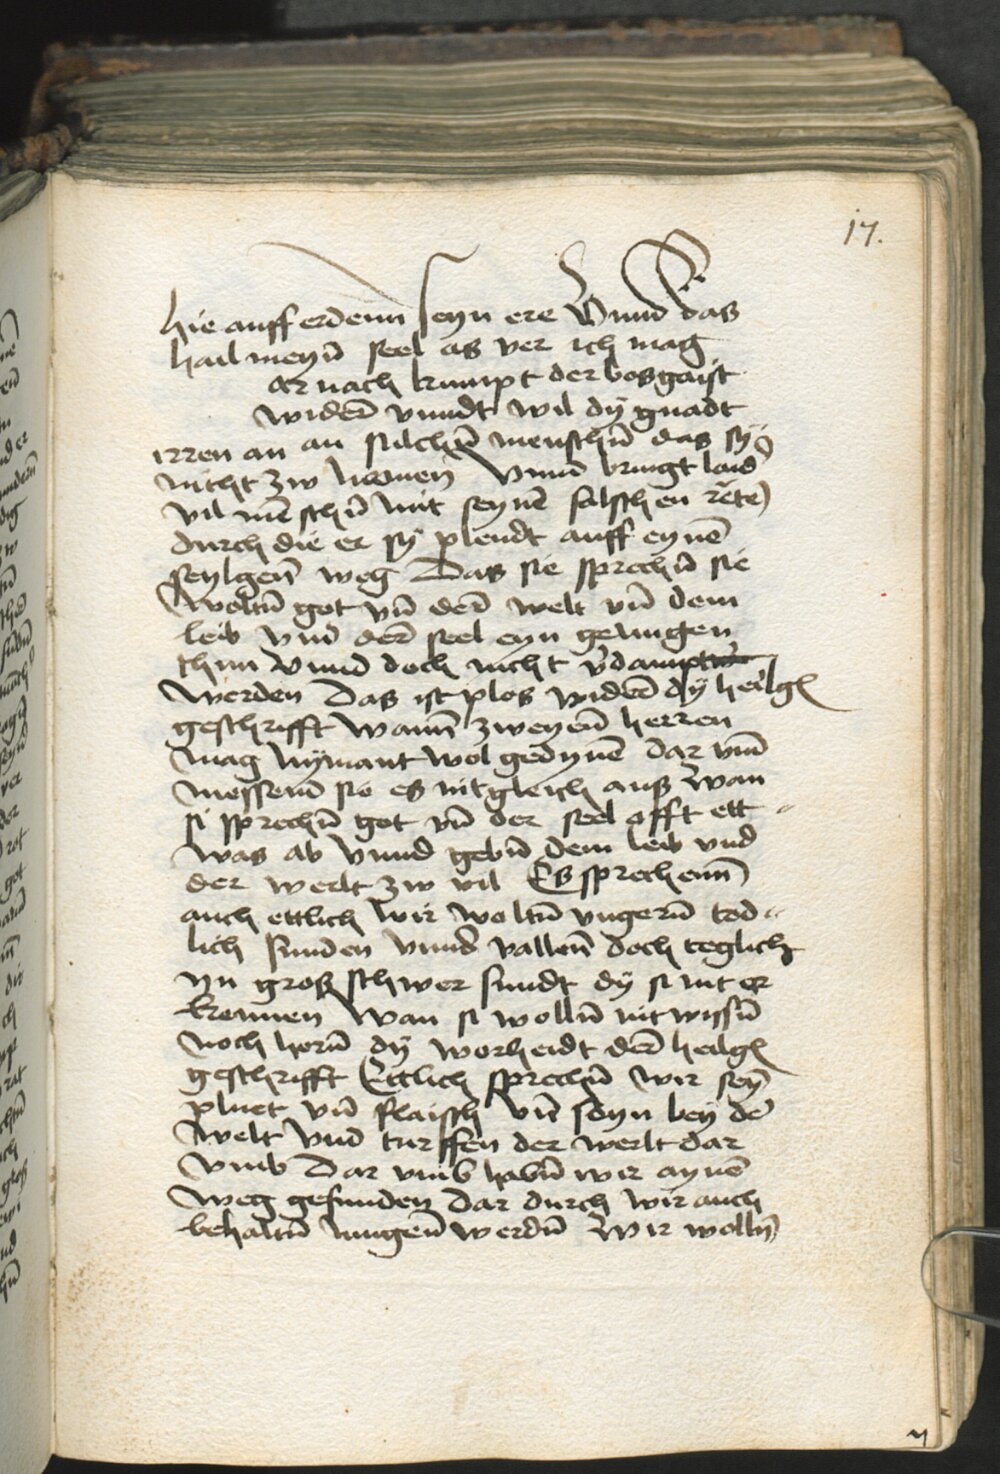 17.
hie auff erdenn seyn ere Vnnd das
hail meyn̄ seel als ver ich mag
ar nach kumpt der bosgaist
wider̄ vnndt wil dÿ gnadt
irren an an sulchn̄ menschn̄ das sÿ
nicht zw nemen Vnnd bringt laid
vil mēschn̄ mit seynē falschen rete
durch die er sÿ plendt auff eynē
seylgen̄ weg Das sie sprechn̄ sie
woltn̄ got vn̄ der̄ welt vn̄ dem
leib vnd der̄ seel eyn genugen
thun Vnnd doch nicht v̄dampt
werden Das ist plos wider̄ dÿ heilgē
geschrifft wann̄ zweyen̄ herren
mag nÿmant wol gedynē dar vm̄
messenn̄ sie es nit gleich auß wan
si sprechn̄ got vn̄ der seel offt ett
was ab Vnnd gebn̄ dem leib vnd
der werlt zw vil Es sprechenn̄
auch ettlich wir woltn̄ vngern̄ tod
lich sunden vnnd vallen̄ doch teglich
yn groß schwer sundt dÿ si nit er
kennen wan si wolln̄ nit wissn̄
noch horn̄ dÿ worheidt der̄ heilgē
geschrifft Ettlich sprechn̄ wir seyn̄
pluet vn̄ flaisch vn̄ seyn bey dē
welt vnd turffen der werlt dar
vmb Dar vmb habn̄ wir aynē
weg gefunden dar durch wir auch
behaltn̄ mugen̄ werdn̄ Wir wolln̄